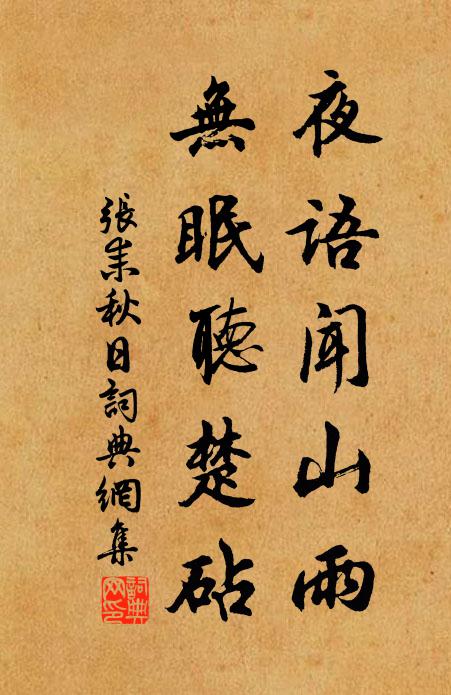 夜语闻山雨
無眠聽楚砧
張耒秋日詞典網集
詞典网印